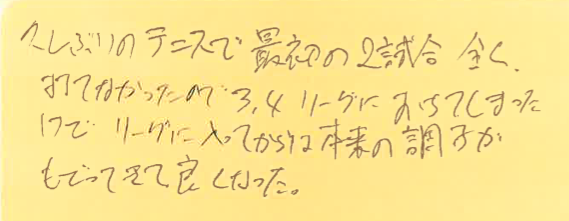 久しぶりのテニスで最初の2試合 全く、
打てなかったので3,4リーグにおちてしまった
けどリーグに入ってからは本来の調子が
もどってきて良くなった。